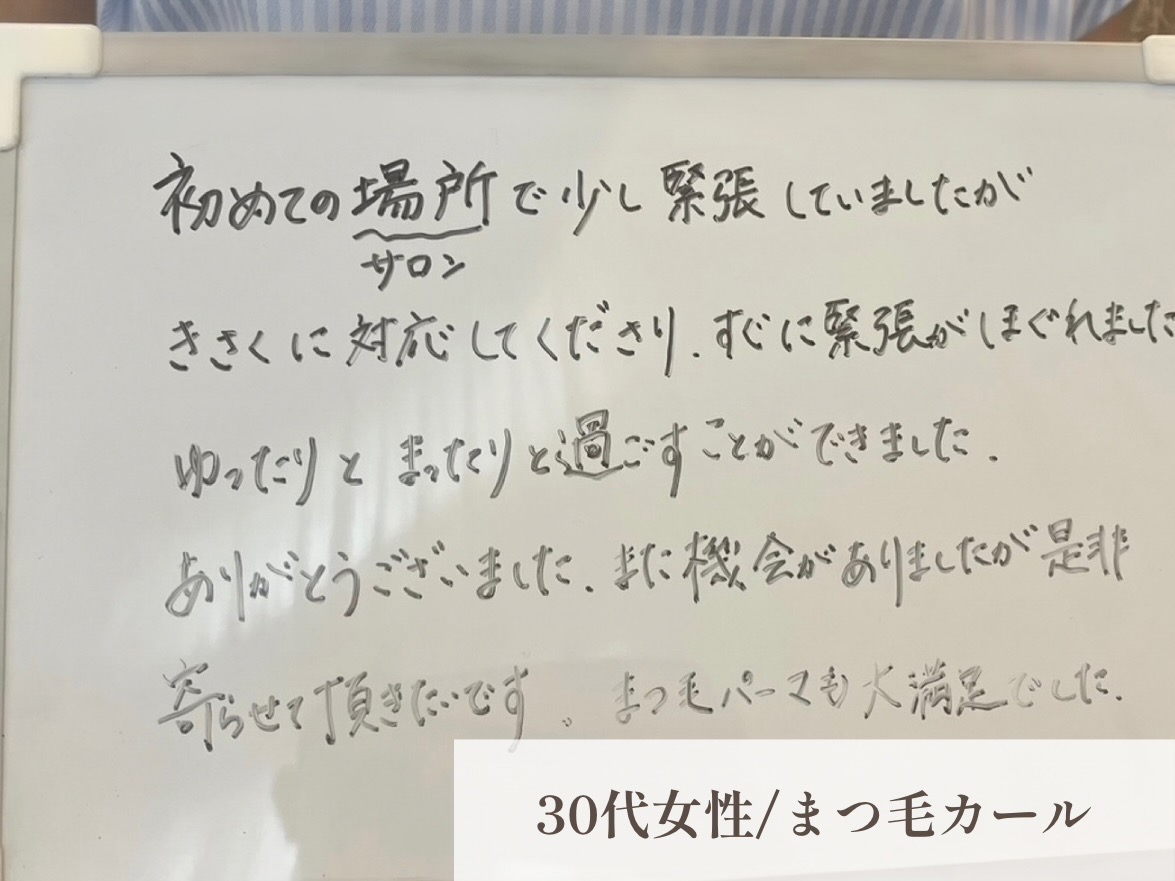 初めての場所で少し緊張していましたが
サロン
きさくに対応してくださり、すぐに緊張がほぐれました
ゆったりとまったりと過ごすことができました。
ありがとうございました。また機会がありましたが是非
寄らせて頂きたいです。まつ毛パーマも大満足でした。
30代女性/まつ毛カール